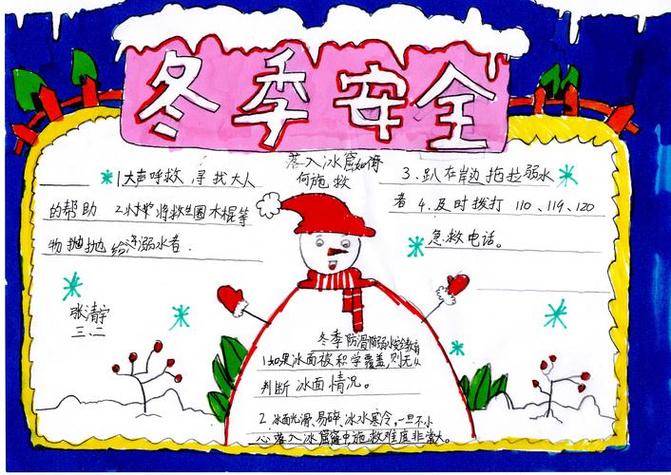 冬季安全
落入冰窟如何施救
1大声呼救 寻找大人
的帮助 2 将救生圈木棍等
物抛 给 溺水者.
3. 趴在岸边拖拉溺水
者 4. 及时拨打 110、119、120
急救电话。
张清宇
三.二
冬季防滑防溺水安全教育
1.如果冰面被积学覆盖,则无从
判断冰面情况。
2. 冰面光滑、易碎、冰水寒冷,一旦不小
心落入冰窟窿中施救难度非常大。